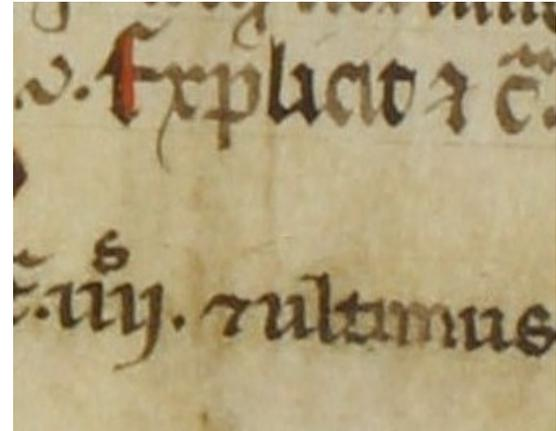 .v. Explicit ⁊ c̃.
c̃.iiijˢ. ⁊ ultimus